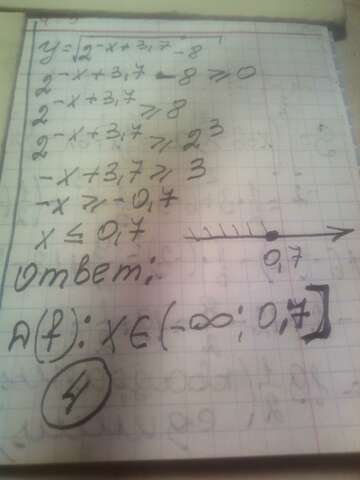 y=√2^{-x+3,7}-8
2^{-x+3,7}-8≥0
2^{-x+3,7}≥8
2^{-x+3,7}≥2^3
-x+3,7≥3
-x≥-0,7
x≤0,7
0,7
Ответ:
D(f): x∈(-∞; 0,7]
4